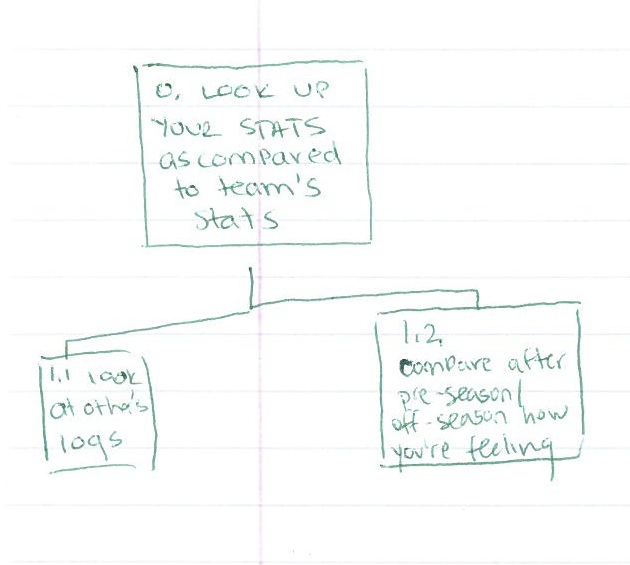 0. LOOK UP
YOUR STATS
as compared
to team's
stats
1.1 look
at other's
logs
1.2.
compare after
pre-season/
off-season how
you're feeling